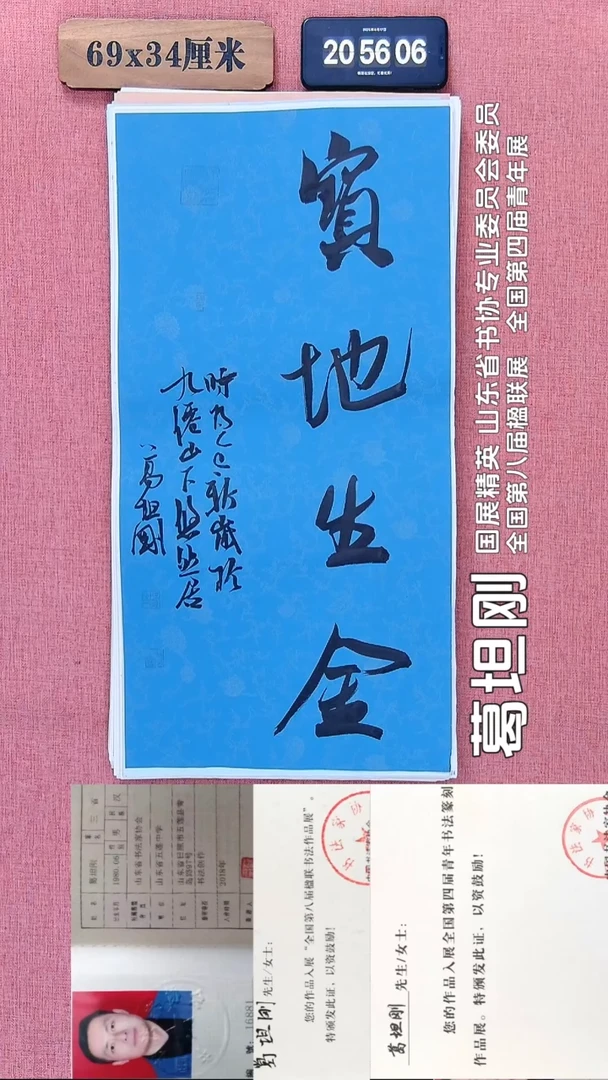 69x34厘米
20 56 06
寳地生金
時乃乙巳新歲於
九僊山下
葛坦剛
葛坦刚
国展精英 山东省书协专业委员会委员
全国第八届楹联展 全国第四届青年展
16881
葛坦刚 先生/女士:
您的作品入展“全国第八届楹联书法作品展”。
特颁发此证，以资鼓励!
葛坦刚 先生/女士:
您的作品入展全国第四届青年书法篆刻
作品展。特颁发此证，以资鼓励!